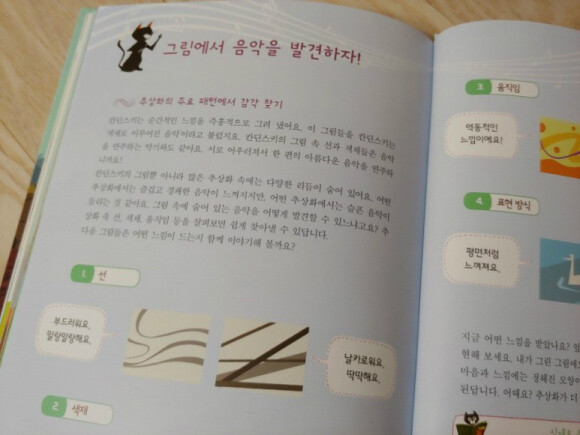 그림에서 음악을 발견하자!
추상화의 주요 패턴에서 감각 찾기
칸딘스키는 순간적인 느낌을 즉흥적으로 그려 냈어요. 이 그림들을 칸딘스키는
색채로 이루어진 음악이라고 불렀지요. 칸딘스키의 그림 속 선과 색채들은 음악
을 연주하는 악기와도 같아요. 서로 어우러져서 한 편의 아름다운 음악을 연주하
니까요!
칸딘스키의 그림뿐 아니라 많은 추상화 속에는 다양한 리듬이 숨어 있어요. 어떤
추상화에서는 즐겁고 경쾌한 음악이 느껴지지만, 어떤 추상화에서는 슬픈 음악이
들리는 것 같아요. 그림 속에 숨어 있는 음악을 어떻게 발견할 수 있느냐고요? 추
상화 속 선, 색채, 움직임 등을 살펴보면 쉽게 찾아낼 수 있답니다.
다음 그림들은 어떤 느낌이 드는지 함께 이야기해 볼까요?
1. 선
부드러워요.
말랑말랑해요.
날카로워요.
딱딱해요.
2. 색채
3. 움직임
역동적인
느낌이에요!
4. 표현 방식
평면처럼
느껴져요.
지금 어떤 느낌을 받았나요?
현해 보세요. 내가 그린 그림에
마음과 느낌에는 정해진 모양이
된답니다. 어때요? 추상화가 더